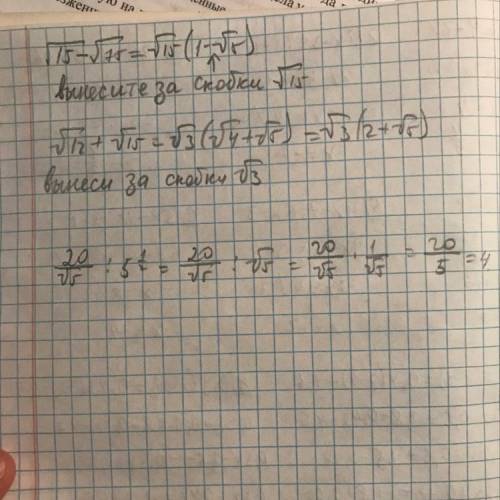 √15 - √75 = √15 (1 - √5)
вынесите за скобки √15
√12 + √15 = √3 (√4 + √5) = √3 (2 + √5)
вынеси за скобки √3
20/√5 : 5^(1/2) = 20/√5 : √5 = 20/√5 · 1/√5 = 20/5 = 4